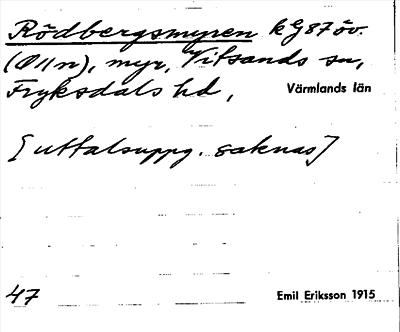 Rödbergsmyren kG87öv.
(Ö11n), myr, Vitsands sn,
Fryksdals hd,
Värmlands län
[uttalsuppg. saknas]
47
Emil Eriksson 1915